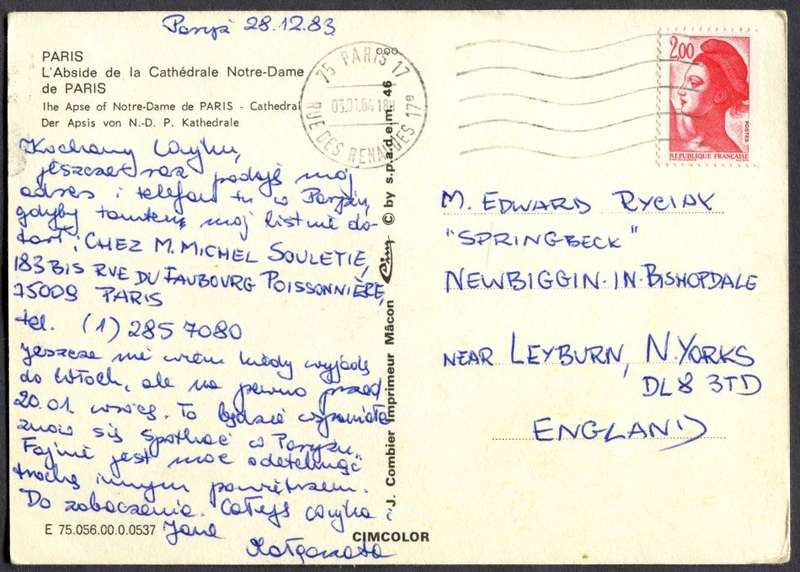 Paryż 28.12.83
PARIS
L'Abside de la Cathédrale Notre-Dame
de PARIS
The Apse of Notre-Dame de PARIS - Cathedral
Der Apsis von N.-D. P. Kathedrale
Kochany wujku,
jeszcze raz podaję mój
adres i telefon tu w Paryżu,
gdyby tamten mój list nie do-
tarł; CHEZ M. MICHEL SOULETIE,
183 BIS RUE DU FAUBOURG POISSONNIÈRE,
75009 PARIS
tel. (1) 285 7080
Jeszcze nie wiem kiedy wyjadę
do Włoch, ale na pewno przed
20.01 wrócę. To będzie wspaniale
znów się spotkać w Paryżu.
Fajnie jest móc odetchnąć
trochę innym powietrzem.
Do zobaczenia. Całuję wujka i
Jane
Małgorzata
E 75.056.00.0.0537
CIMCOLOR
J. Combier Imprimeur Mâcon Cim © by s.p.a.d.e.m. 46
75 PARIS 17
RUE DES RENAUDES 17e
03.01.84 18H
2,00
POSTES
REPUBLIQUE FRANÇAISE
M. EDWARD RYCIAK
"SPRINGBECK"
NEWBIGGIN-IN-BISHOPDALE
NEAR LEYBURN, N. YORKS
DL8 3TD
ENGLAND